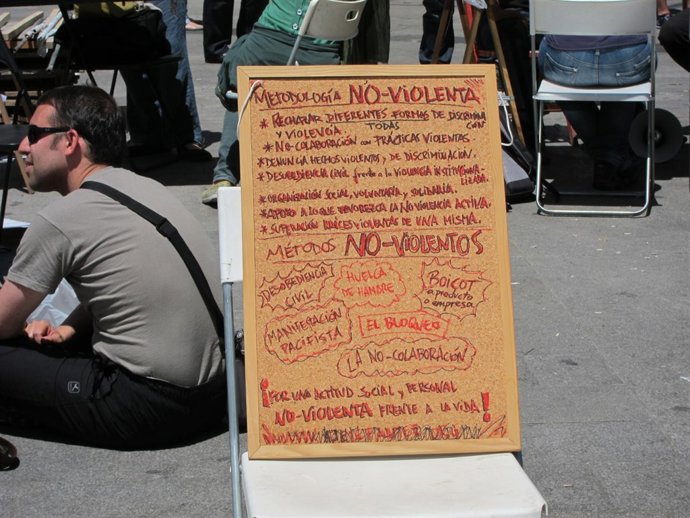 METODOLOGÍA NO-VIOLENTA
* RECHAZAR DIFERENTES FORMAS DE DISCRIMINA
Y VIOLENCIA. TODAS CIÓN
* NO-COLABORACIÓN CON PRÁCTICAS VIOLENTAS.
* DENUNCIA HECHOS VIOLENTOS Y DE DISCRIMINACIÓN.
* DESOBEDIENCIA CIVIL frente a la VIOLENCIA INSTITUCIONA-
LIZADA.
* ORGANIZACIÓN SOCIAL, VOLUNTARIA, SOLIDARIA.
* APOYO A LO QUE FAVOREZCA LA NO VIOLENCIA ACTIVA.
* SUPERACIÓN RAÍCES VIOLENTAS DE UNA MISMA.
MÉTODOS NO-VIOLENTOS
DESOBEDIENCIA
CIVIL
HUELGA
DE HAMBRE
BOICOT
a producto
o empresa
MANIFESTACIÓN
PACIFISTA
EL BLOQUEO
LA NO-COLABORACIÓN
¡POR UNA ACTITUD SOCIAL Y PERSONAL
NO-VIOLENTA FRENTE A LA VIDA!